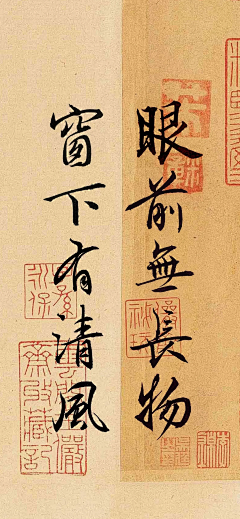 眼前無長物
窗下有清風